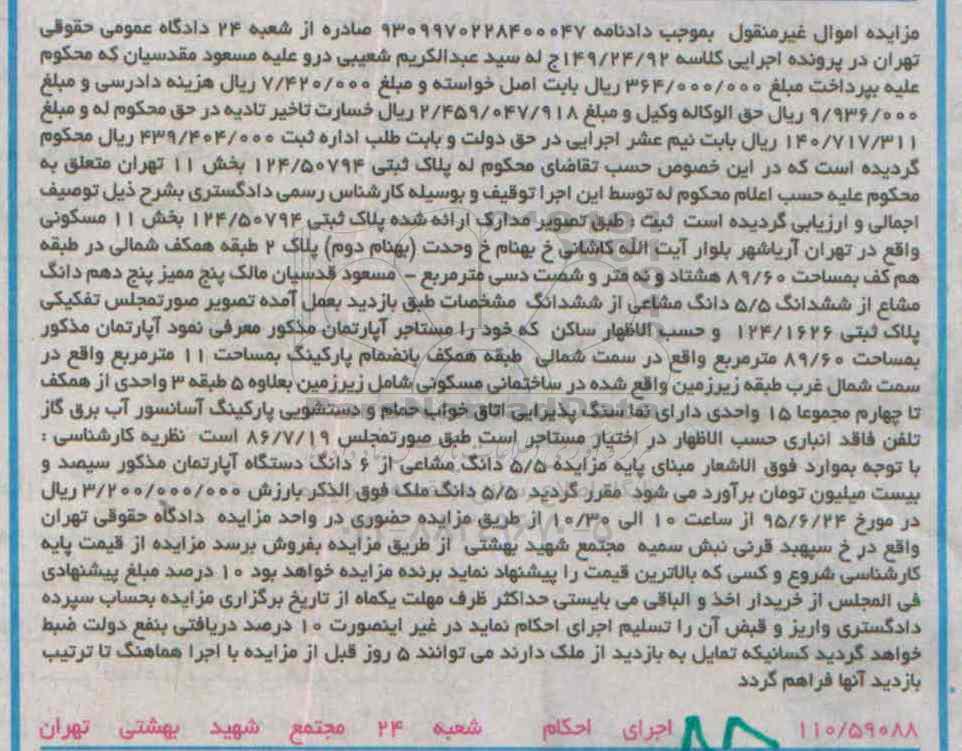 مزایده اموال غیرمنقول بموجب دادنامه ۹۳۰۹۹۷۰۲۲۸۴۰۰۰۴۷ صادره از شعبه ۲۴ دادگاه عمومی حقوقی
تهران در پرونده اجرایی کلاسه ۱۴۹/۲۴/۹۲ج له سید عبدالکریم شعیبی درو علیه مسعود مقدسیان که محکوم
علیه بپرداخت مبلغ ۳۶۴/۰۰۰/۰۰۰ ریال بابت اصل خواسته و مبلغ ۷/۴۲۰/۰۰۰ ریال هزینه دادرسی و مبلغ
۹/۹۳۶/۰۰۰ ریال حق الوکاله وکیل و مبلغ ۲/۴۵۹/۰۴۷/۹۱۸ ریال خسارت تاخیر تادیه در حق محکوم له و مبلغ
۱۴۰/۷۱۷/۳۱۱ ریال بابت نیم عشر اجرایی در حق دولت و بابت طلب اداره ثبت ۴۳۹/۴۰۴/۰۰۰ ریال محکوم
گردیده است که در این خصوص حسب تقاضای محکوم له پلاک ثبتی ۱۲۴/۵۰۷۹۴ بخش ۱۱ تهران متعلق به
محکوم علیه حسب اعلام محکوم له توسط این اجرا توقیف و بوسیله کارشناس رسمی دادگستری بشرح ذیل توصیف
اجمالی و ارزیابی گردیده است ثبت : طبق تصویر مدارک ارائه شده پلاک ثبتی ۱۲۴/۵۰۷۹۴ بخش ۱۱ مسکونی
واقع در تهران آریاشهر بلوار آیت الله کاشانی خ بهنام خ وحدت (بهنام دوم) پلاک ۲ طبقه همکف شمالی در طبقه
هم کف بمساحت ۸۹/۶۰ هشتاد و نه متر و شصت دسی مترمربع - مسعود قدسیان مالک پنج ممیز پنج دهم دانگ
مشاع از ششدانگ ۵/۵ دانگ مشاعی از ششدانگ مشخصات طبق بازدید بعمل آمده تصویر صورتمجلس تفکیکی
پلاک ثبتی ۱۲۴/۱۶۲۶ و حسب الاظهار ساکن که خود را مستاجر آپارتمان مذکور معرفی نمود آپارتمان مذکور
بمساحت ۸۹/۶۰ مترمربع واقع در سمت شمالی طبقه همکف بانضمام پارکینگ بمساحت ۱۱ مترمربع واقع در
سمت شمال غرب طبقه زیرزمین واقع شده در ساختمانی مسکونی شامل زیرزمین بعلاوه ۵ طبقه ۳ واحدی از همکف
تا چهارم مجموعا ۱۵ واحدی دارای نما سنگ پذیرایی اتاق خواب حمام و دستشویی پارکینگ آسانسور آب برق گاز
تلفن فاقد انباری حسب الاظهار در اختیار مستاجر است طبق صورتمجلس ۸۶/۷/۱۹ است نظریه کارشناسی :
با توجه بموارد فوق الاشعار مبنای پایه مزایده ۵/۵ دانگ مشاعی از ۶ دانگ دستگاه آپارتمان مذکور سیصد و
بیست میلیون تومان برآورد می شود مقرر گردید ۵/۵ دانگ ملک فوق الذکر بارزش ۳/۲۰۰/۰۰۰/۰۰۰ ریال
در مورخ ۹۵/۶/۲۴ از ساعت ۱۰ الی ۱۰/۳۰ از طریق مزایده حضوری در واحد مزایده دادگاه حقوقی تهران
واقع در خ سپهبد قرنی نبش سمیه مجتمع شهید بهشتی از طریق مزایده بفروش برسد مزایده از قیمت پایه
کارشناسی شروع و کسی که بالاترین قیمت را پیشنهاد نماید برنده مزایده خواهد بود ۱۰ درصد مبلغ پیشنهادی
فی المجلس از خریدار اخذ و الباقی می بایستی حداکثر ظرف مهلت یکماه از تاریخ برگزاری مزایده بحساب سپرده
دادگستری واریز و قبض آن را تسلیم اجرای احکام نماید در غیر اینصورت ۱۰ درصد دریافتی بنفع دولت ضبط
خواهد گردید کسانیکه تمایل به بازدید از ملک دارند می توانند ۵ روز قبل از مزایده با اجرا هماهنگ تا ترتیب
بازدید آنها فراهم گردد
۱۱۰/۵۹۰۸۸ اجرای احکام شعبه ۲۴ مجتمع شهید بهشتی تهران